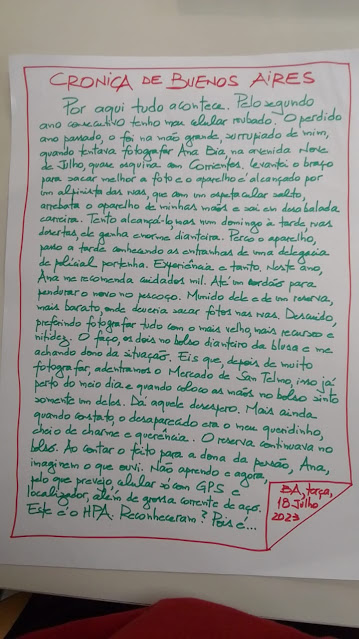 CRONICA DE BUENOS AIRES
Por aqui tudo acontece. Pelo segundo
ano consecutivo tenho meu celular roubado. O perdido
ano passado, o foi na mão grande, surrupiado de mim,
quando tentava fotografar Ana Bia, na avenida Nove
de Julho, quase esquina com Corrientes. Levantei o braço
para sacar melhor a foto e o aparelho é alcançado por
um alpinista das ruas, que com um espetacular salto,
arrebata o aparelho de minhas mãos e sai em desabalada
carreira. Tento alcançá-lo, mas num domingo à tarde ruas
desertas, ele ganha enorme dianteira. Perco o aparelho,
passo a tarde conhecendo as entranhas de uma delegacia
de policial portenha. Experiência e tanto. Neste ano,
Ana me recomenda cuidados mil. Até um cordão para
pendurar o novo no pescoço. Munido dele e de um reserva,
mais barato, onde deveria sacar fotos nas ruas. Descuido,
preferindo fotografar tudo com o mais velho, mais recursos e
nitidez. O faço, os dois no bolso dianteiro da blusa e me
achando dono da situação. Eis que, depois de muito
fotografar, adentramos o Mercado de San Telmo, isso já
perto do meio dia e quando coloco as mãos no bolso sinto
somente um deles. Daí aquele desespero. Mais ainda
quando constato, o desaparecido era o meu queridinho,
cheio de charme e querência. O reserva continuava no
bolso. Ao contar o feito para a dona da pensão, Ana,
imaginem o que ouvi. Não aprendo e agora,
pelo que prevejo, celular só com GPS e
localizador, além de grossa corrente de aço.
Este é o HPA. Reconheceram? Pois é...
BA, terça,
18 Julho
2023